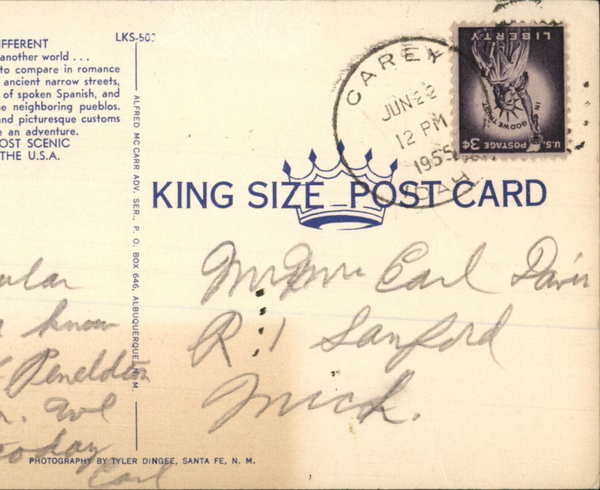 IFFERENT
another world . . .
to compare in romance
ancient narrow streets,
of spoken Spanish, and
neighboring pueblos.
nd picturesque customs
an adventure.
OST SCENIC
THE U.S.A.
LKS-502
ALFRED MC CARR ADV. SER., P. O. BOX 646, ALBUQUERQUE, N. M.
CAREY
JUN 22
12 PM
1955
IDAHO
LIBERTY
IN GOD WE TRUST
U.S. POSTAGE 3¢
KING SIZE POST CARD
Mr Mrs Carl Davis
R 1 Sanford
Mich.
know
Peneldton
today
Carl
PHOTOGRAPHY BY TYLER DINGEE, SANTA FE, N. M.